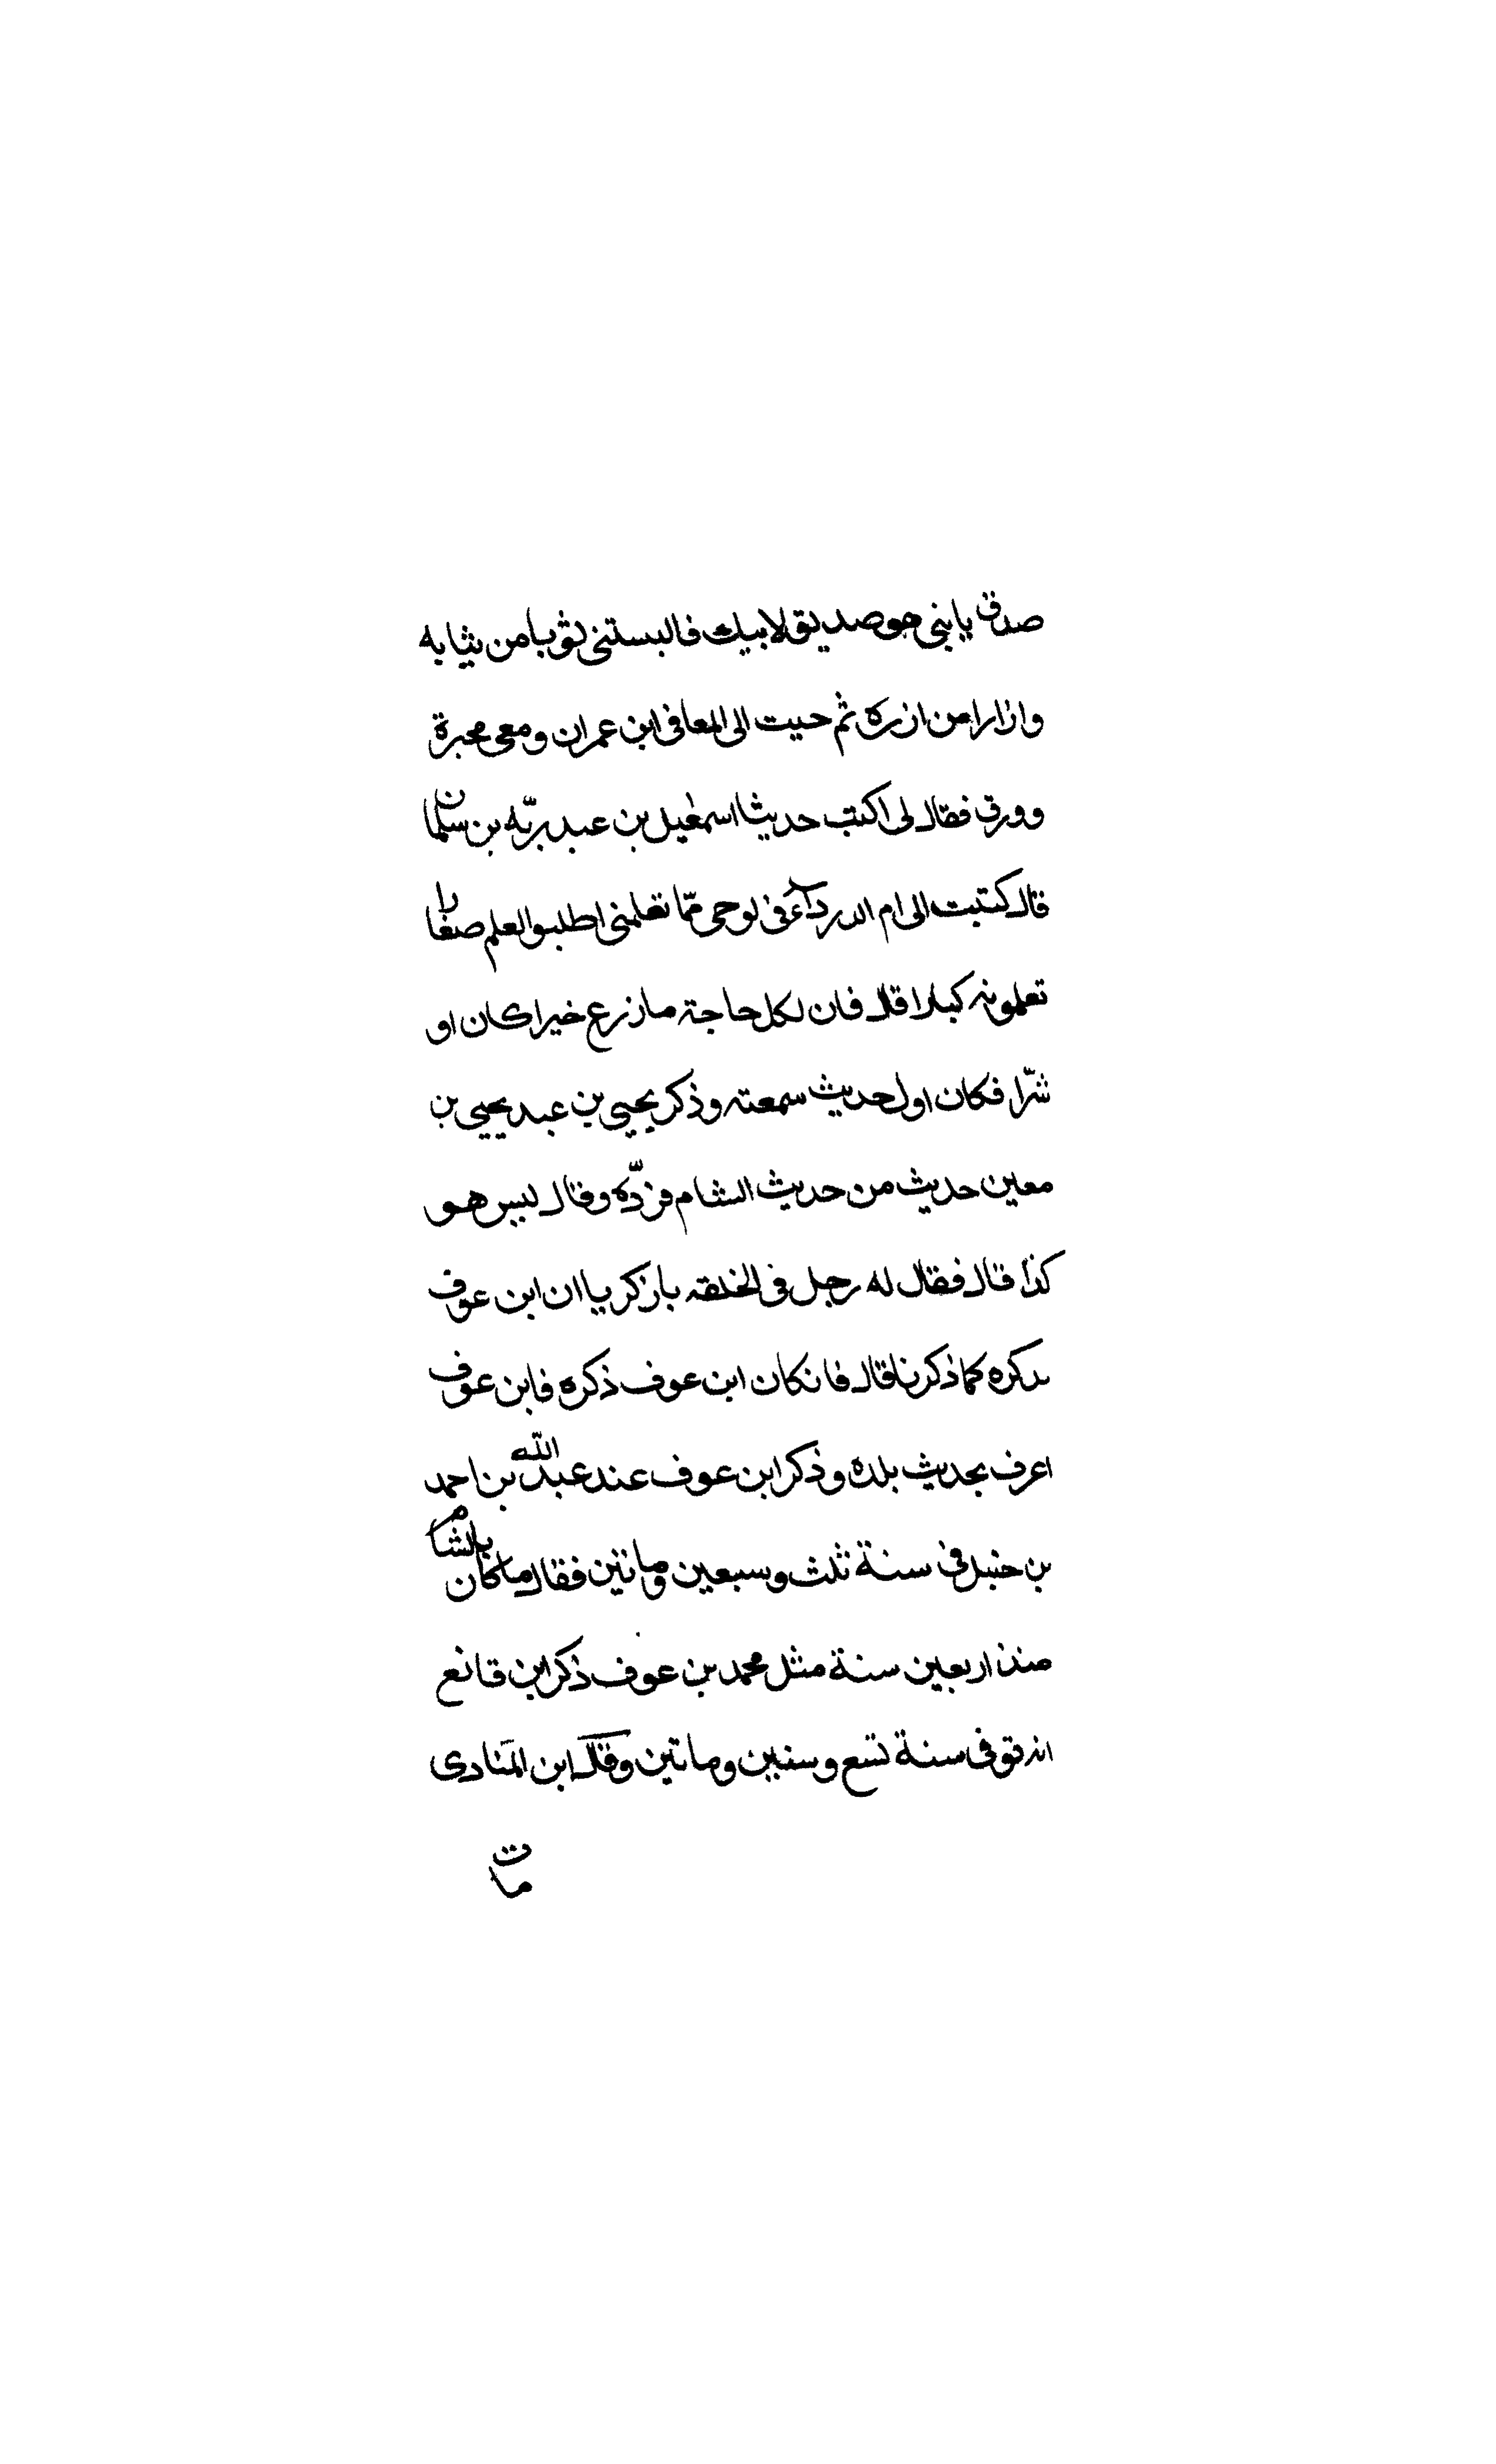 صدق يا بني هو صديق لابيك فالبستني ثوبا من ثيابه
وازارا من ازره ثم جيت الى المعافى ابن عمران ومعي محبرة
وورق فقال لي اكتب حديثا اسمعيل بن عبد ربّه بن سلمان
قال كتبت الى ام الدرداء في لوحي ممّا تعلمني اطلبوا العلم صغارا
تعلمونه كبارا قال فان لكل حاجة ما زرع خيرا كان او
شرّا فكان اول حديث سمعته وذكر يحيى بن عبد يحيى بن
معين حديث من حديث الشام فردّه وقال ليس هو
كذا قال فقال له رجل في الحلقه يا زكريا ان ابن عوف
يذكره كما ذكرنا قال فان كان ابن عوف ذكره فابن عوف
اعرف بحديث بلده وذكر ابن عوف عند عبد الله بن احمد
بن حنبل في سنة ثلث وسبعين وماتين فقال ما كان بالشام
منذ اربعين سنة مثل محمد بن عوف ذكر ابن قانع
انه توفى سنة تسع وستين وماتين وقال ابن المنادى
مات